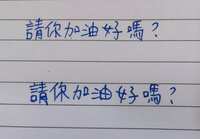 請你加油好嗎？
請你加油好嗎？